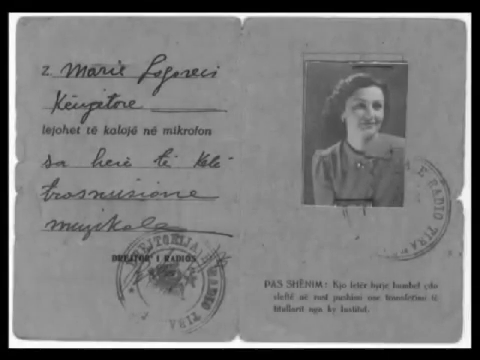 Z. Marie Logoreci
Këngëtore
lejohet të kalojë në mikrofon
sa herë të ketë
trasmisione
muzikale
DREJTOR' I RADIOS
RADIO TIRA
E RADIO TIRA
PAS SHËNIM: Kjo letër hyrje humbet çdo
vleftë në rast pushimi ose transferimi të
titullarit nga ky Institut.